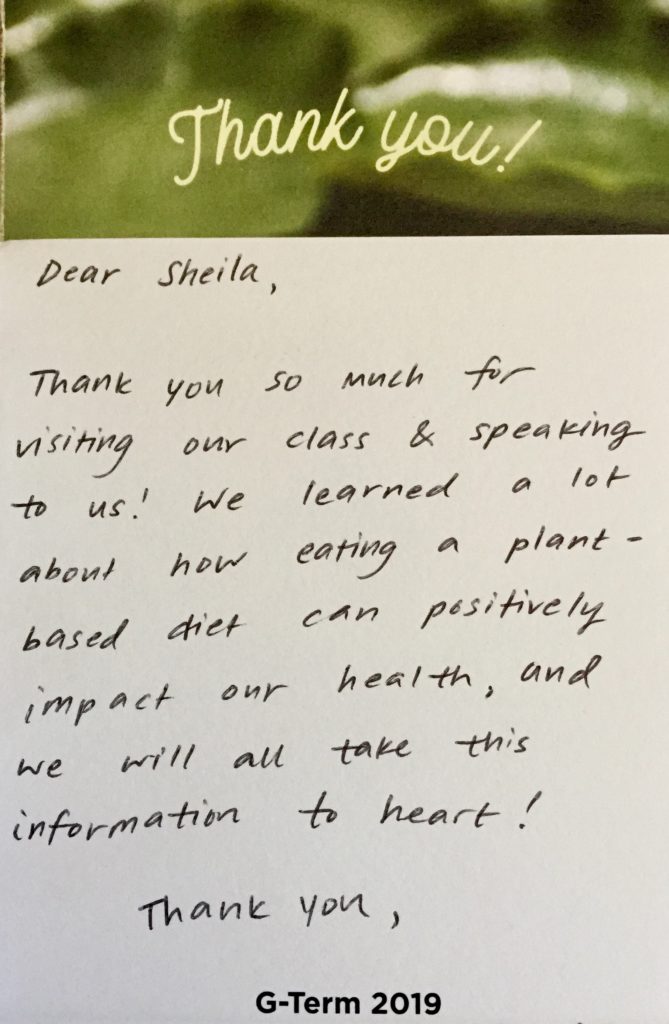 Thank you!
Dear Sheila,
Thank you so much for
visiting our class & speaking
to us! We learned a lot
about how eating a plant-
based diet can positively
impact our health, and
we will all take this
information to heart!
Thank you,
G-Term 2019